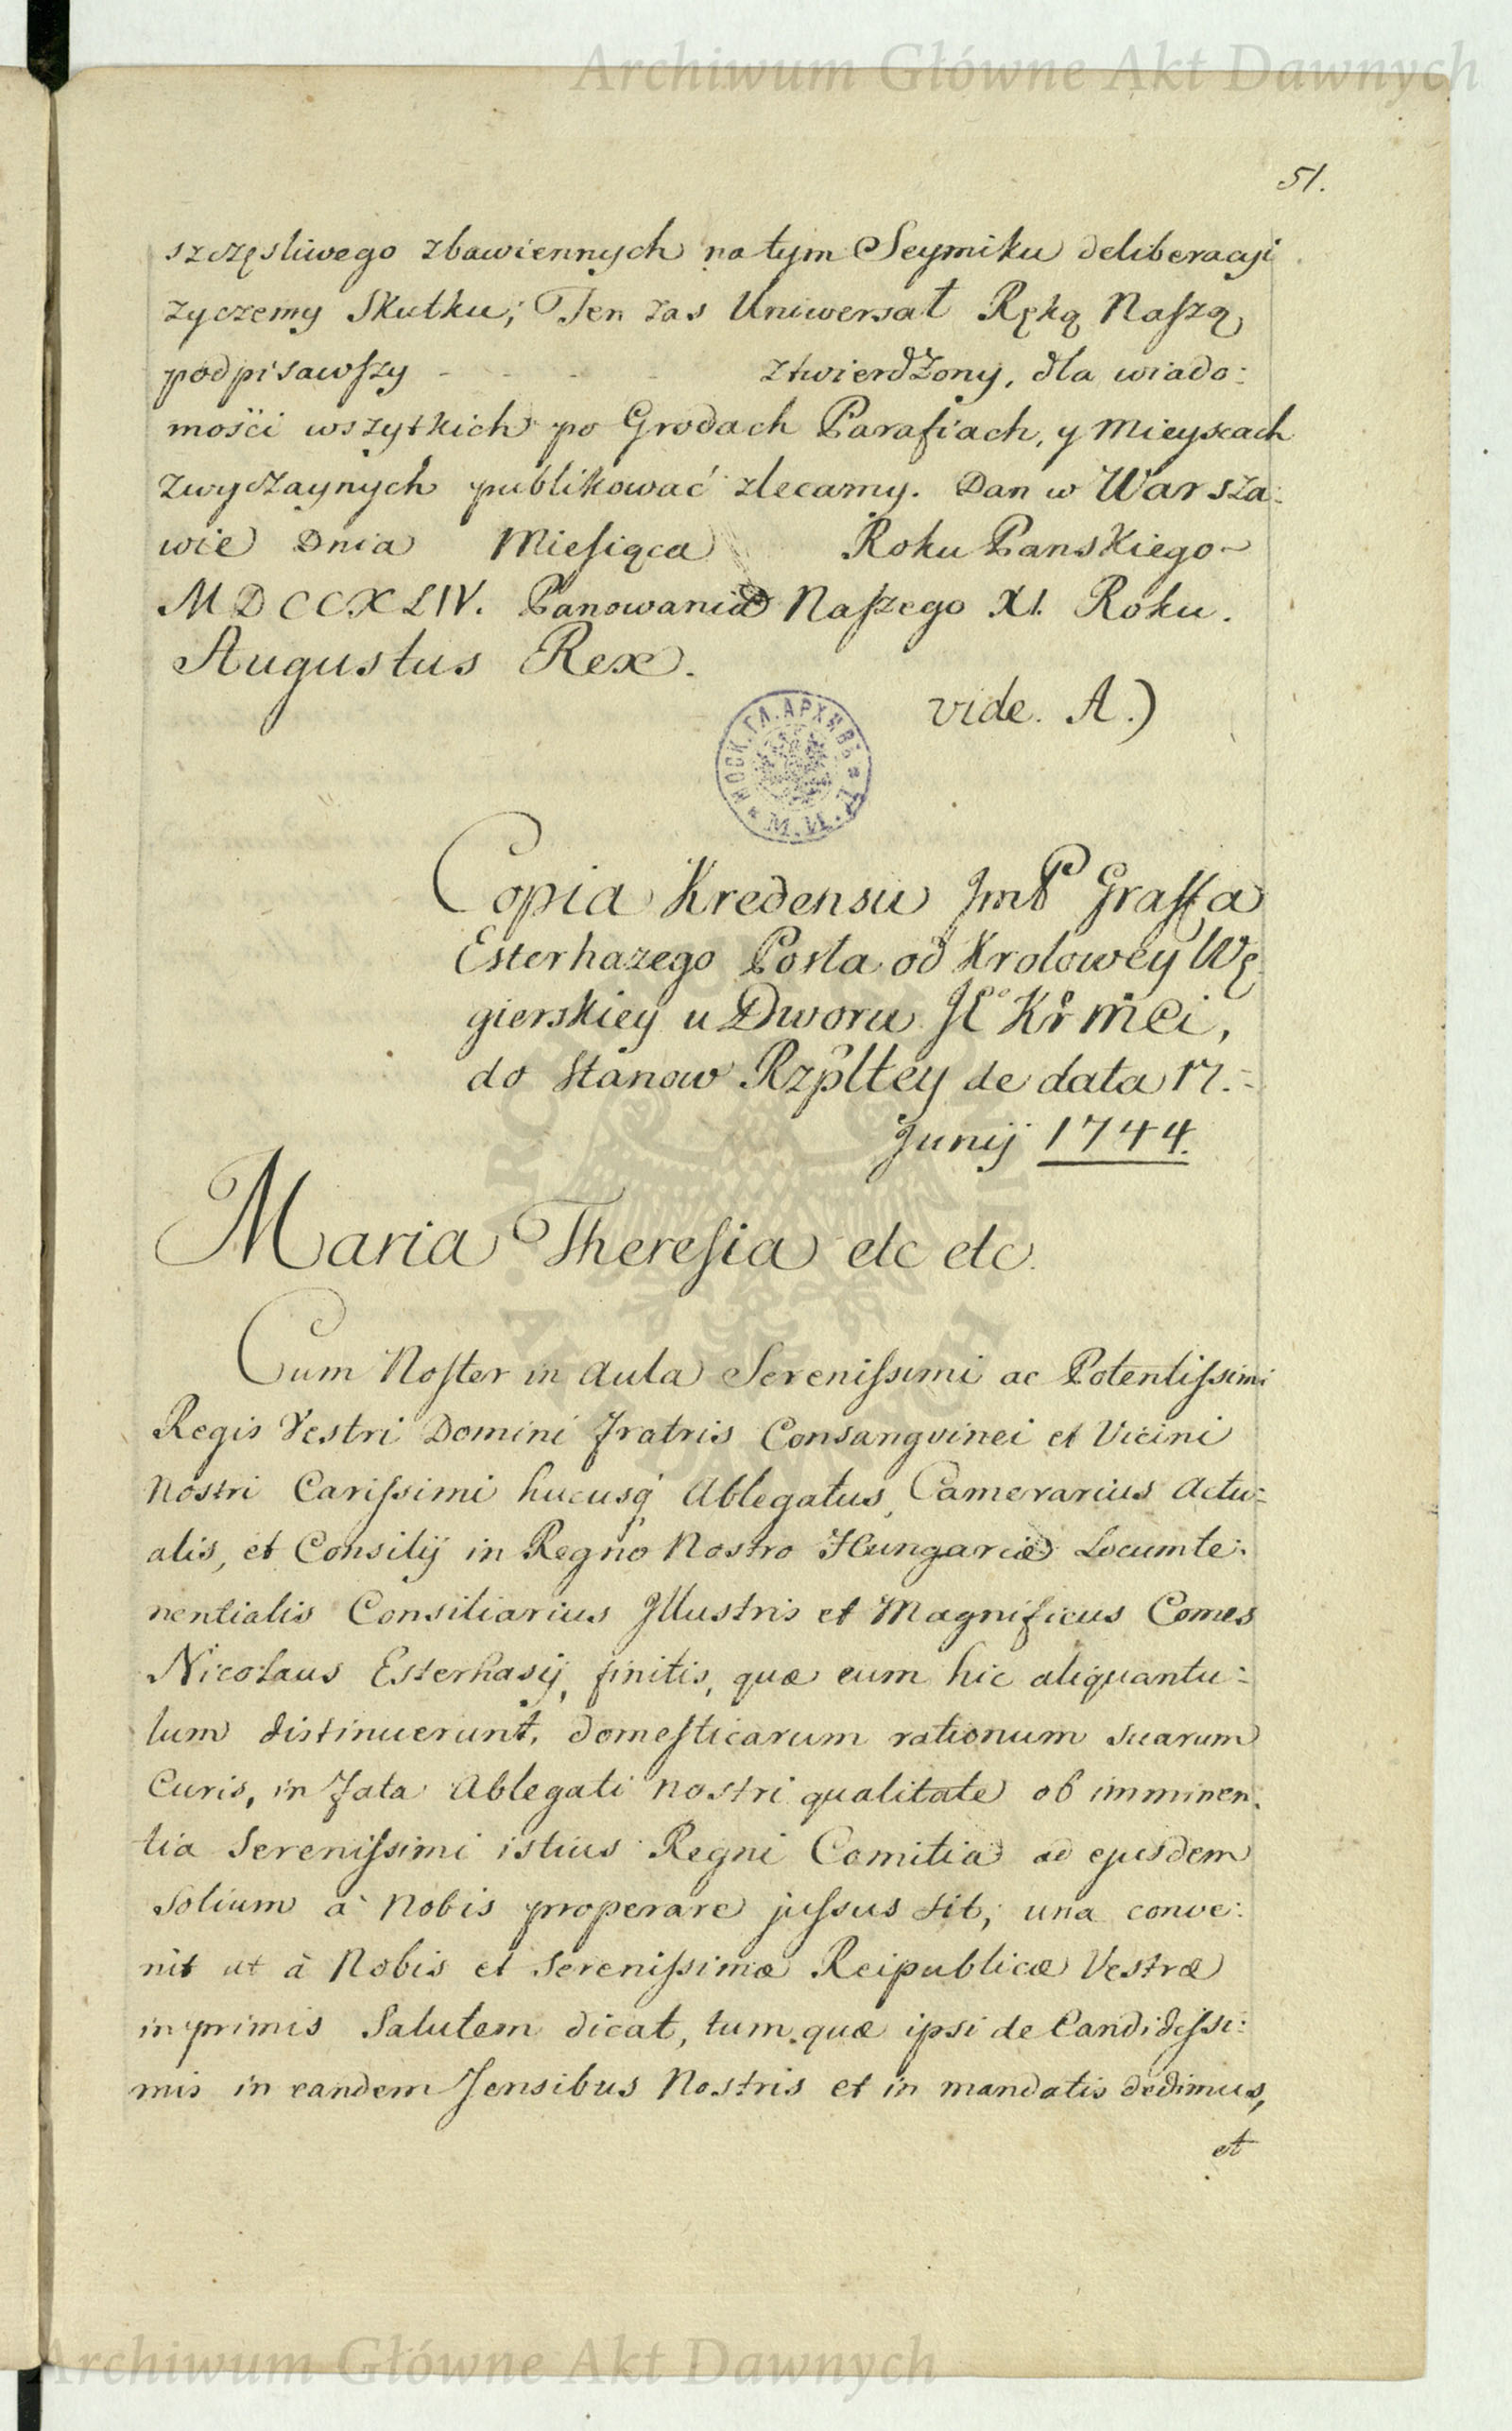 Archiwum Główne Akt Dawnych
51.
szczęsliwego zbawiennych na tym Seymiku deliberacyi
zyczemy Skutku; Ten zas Uniwersał Ręką Naszą,
podpisawszy - - - - ztwierdzony, dla wiado:
mości wszytkich po Grodach Parafiach, y Mieyscach
zwyczaynych publikować zlecamy. Dan w Warsza:
wie Dnia Miesiąca Roku Panskiego
MDCCXLIV. Panowania Naszego XI. Roku.
Augustus Rex.
vide. A.)
МОСК. ГЛ. АРХИВЪ
М. И. Д.
Copia Kredensu JmP Graffa
Esterhazego Posła od Krolowey Wę
gierskiey u Dworu JK Mci,
do Stanow Rzpltey de data 17.
Junij 1744.
Maria Theresia etc etc.
Cum Noster in Aula Serenissimi ac Potentissimi
Regis Vestri Domini Fratris Consangvinei et Vicini
Nostri Carissimi hucusq Ablegatus, Camerarius Actu:
alis, et Consilij in Regno Nostro Hungariæ Locumte:
nentialis Consiliarius Jllustris et Magnificus Comes
Nicolaus Esterhasij, finitis, quæ eum hic aliquantu:
lum distinuerunt, domesticarum rationum suarum
Curis, in fata Ablegati nostri qualitate ob imminen:
tia Serenissimi istius Regni Comitia ad ejusdem
Solium à Nobis properare jussus sit, una conve:
nit ut à Nobis et Serenissimæ Reipublicæ Vestræ
inprimis Salutem dicat, tum quæ ipsi de Candidissi:
mis in eandem Sensibus Nostris et in mandatis dedimus,
et
Archiwum Główne Akt Dawnych